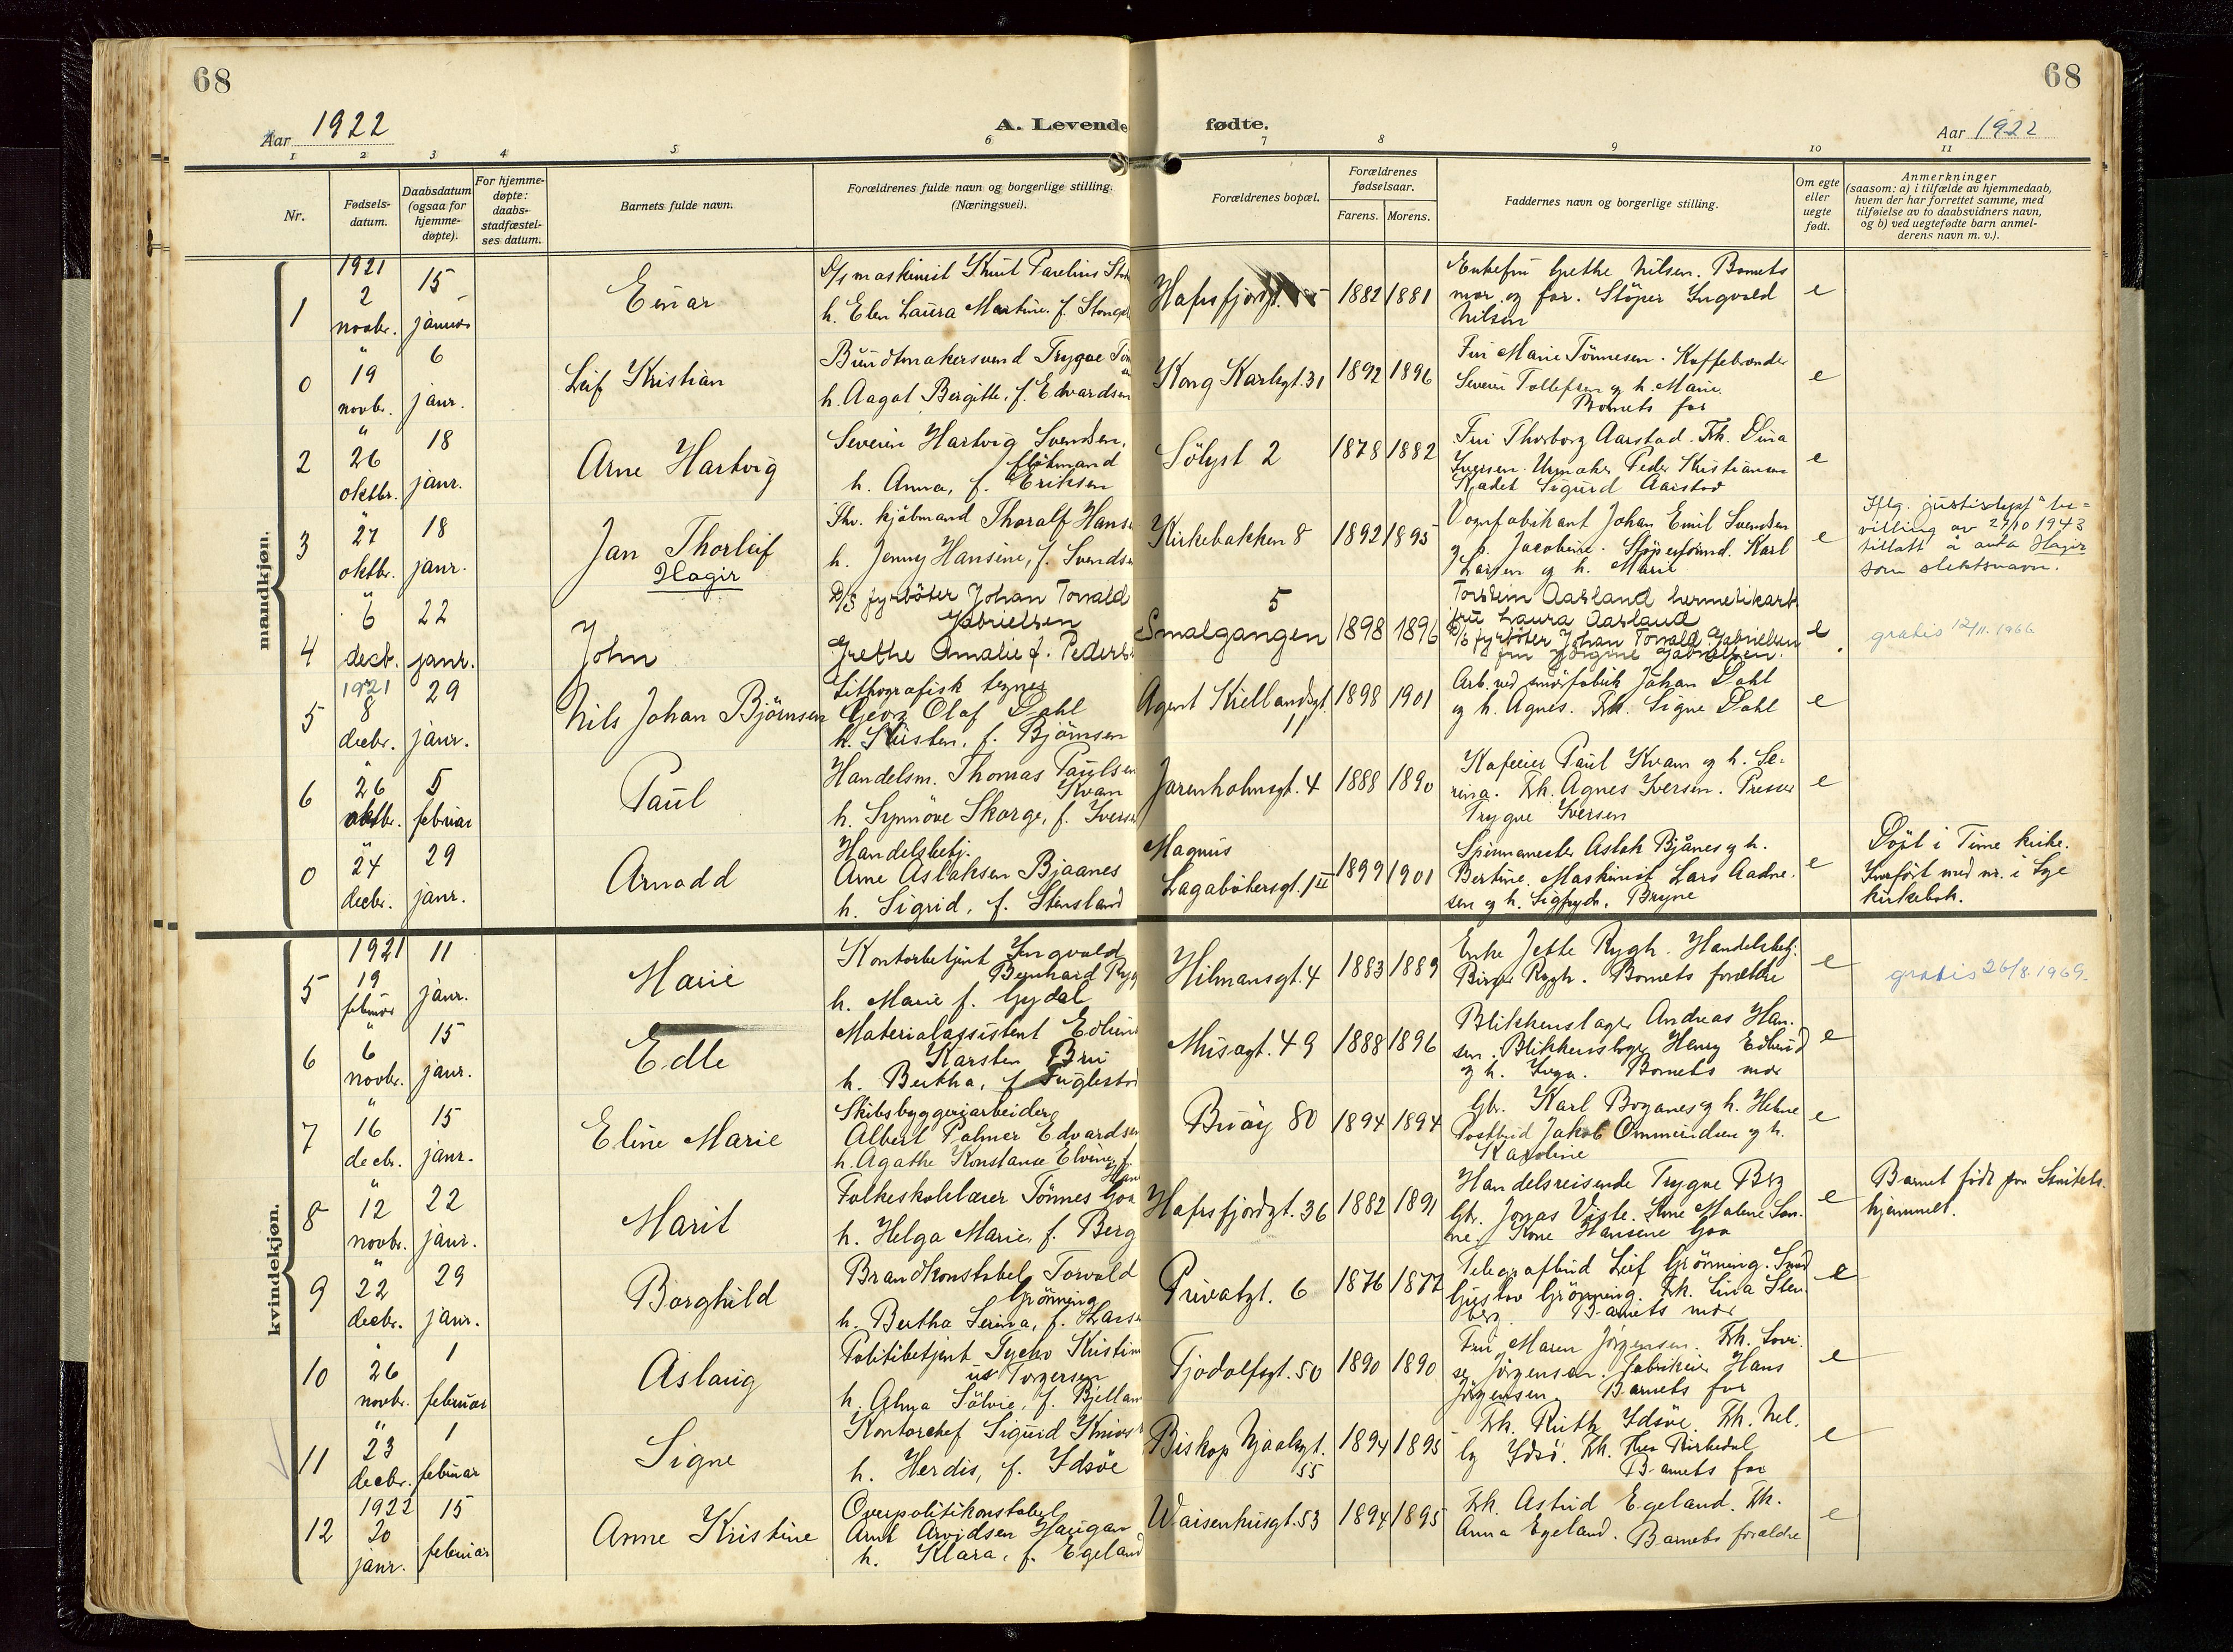 68
68
Aar 1922
A. Levende fødte.
Aar 1922
1 2 3 4 5 6 7 8 9 10 11
Nr.
Fødsels-
datum.
Daabsdatum
(ogsaa for
hjemme-
døpte).
For hjemme-
døpte:
daabs-
stadfæstel-
ses datum.
Barnets fulde navn.
Forældrenes fulde navn og borgerlige stilling.
(Næringsvei).
Forældrenes bopæl.
Forældrenes
fødselsaar.
Farens. Morens.
Faddernes navn og borgerlige stilling.
Om egte
eller
uegte
født.
Anmerkninger
(saasom: a) i tilfælde av hjemmedaab,
hvem der har forrettet samme, med
tilføielse av to daabsvidners navn,
og b) ved uegtefødte barn anmel-
derens navn m. v.).
mandkjøn.
1
1921
2
novbr.
15
januar
Einar
D/s maskinist Knut Parelius
h. Elen Laura Martine, f.
Hafrsfjordgt.
1882 1881
Enkefru Grethe Nilsen. Barnets
mor og far. Støper Ingvald
Nilsen
e
0
"
19
novbr.
6
janr.
Leif Kristian
Buntmakersvend Trygve
h. Aagot Bergitte, f. Edvardsen
Kong Karlsgt. 31
1892 1896
Fru Marie Tönnesen. Kaffebrænder
Severin Tollefsen og h. Marie.
Barnets far
e
2
"
26
oktbr.
18
janr.
Arne Hartvig
Severin Hartvig Svendsen,
h. Anna, f. Eriksen
Sölyst 2
1878 1882
Fru Thorborg Aarstad. Frk. Dina
Iversen. Urmaker Peder Kristiansen
Kadet Sigurd Aarstad
e
3
"
27
oktbr.
18
janr.
Jan Thorleif
Hagir
kjöbmand Thoralf
h. Jenny Hansine, f.
Kirkebakken 8
1892 1895
Vognfabrikant Johan Emil Svendsen
og h. Jacobine. Støperformd. Karl
Larsen og h. Marie
e
Iflg. justisdept.s be-
villing av 27/10 1943
tillatt å anta Hagir
som slektsnavn.
4
"
6
decb.
22
janr.
John
D/S fyrböter Johan Torvald
Gabrielsen
Grethe Amalie f.
5
Smalgangen
1898 1896
Torstein Aasland hermetikarb.
fru Laura Aasland
D/S fyrböter Johan Torvald Gabrielsen
fru Jörgine Gabrielsen.
e
gratis 12/11.1966
5
1921
8
decbr.
29
janr.
Nils Johan Björnsen
Lithografisk tegner
Georg Olaf Dahl
h. Kristen, f. Björnsen
Agent Kiellandsgt.
11
1898 1901
Arb. ved smörfabrik Johan Dahl
og h. Agnes. Frk. Signe Dahl
e
6
"
26
oktbr.
5
februar
Paul
Handelsm. Thomas Paulsen
Kvam
h. Synnöve Skorge, f.
Jarenholmsgt. 4
1888 1890
Kafeeier Paul Kvam og h. Se-
rina. Frk. Agnes Iversen. Presser
Trygve Iversen
e
0
"
24
decbr.
29
janr.
Arnodd
Handelsbetj.
Arne Aslaksen Bjaanes
h. Sigrid, f. Stensland
Magnus
Lagabötersgt. 1 II
1899 1901
Spinnemester Aslak Bjånes og h.
Bertine. Maskinist Lars Aadne-
sen og h. Sigfryd, Bryne
e
Döpt i Time kirke.
Innført med nr. i Lye
kirkebok.
kvindekjøn.
5
1921
19
februar
11
janr.
Marie
Kontorbetjent Ingvald
Bernhard
h. Marie f. Gydal
Hilmansgt. 4
1883 1889
Enke Jette Rygh. Handelsbetj.
Birger Rygh. Barnets forældre
e
gratis 26/8.1969.
6
"
6
novbr.
15
janr.
Edle
Materialassistent
Karsten Bru
h. Bertha, f. Fuglestad
Misagt. 49
1888 1896
Blikkenslager Andreas Han-
sen. Blikkenslager Henry Edlund
og h. Inga. Barnets mor
e
7
"
16
decbr.
15
janr.
Eline Marie
Skibsbyggeriarbeider
Albert Palmer Edvardsen
h. Agathe Konstanse Elvine, f.
Buöy 80
1894 1894
Gbr. Karl Boganes og h. Helene
Postbud Jakob Ommundsen og h.
Karoline
e
8
"
12
novbr.
22
janr.
Marit
Folkeskolelærer Tönnes Goa
h. Helga Marie, f. Berg
Hafrsfjordgt. 36
1882 1891
Handelsreisende Trygve Berg
Gbr. Jonas Viste. Kone Malene
Kone Hansene Goa
e
Barnet födt paa Sanitets-
hjemmet.
9
"
22
decbr.
29
janr.
Borghild
Brandkonstabel Torvald
Grönning
h. Bertha Serina, f.
Privatgt. 6
1876 1877
Telegrafbud Leif Grönning. Smed
Gustav Grönning. Frk. Lina Sten-
berg. Barnets mor
e
10
"
26
novbr.
1
februar
Aslaug
Politibetjent Tycho
Torgersen
h. Alma Sölvie, f.
Tjodolfsgt. 50
1890 1890
Fru Maren Jörgensen. Frk. Lovi-
se Jörgensen. Fabrikeier Hans
Jörgensen. Barnets far
e
11
"
23
decbr.
1
februar
Signe
Kontorchef Sigurd
h. Herdis, f. Idsöe
Biskop Njaalsgt.
55
1894 1895
Frk. Ruth Idsöe. Frk. Nel-
ly Idsö. Frk. Thea Kirkedal
Barnets far
e
12
1922
20
janr.
15
februar
Anne Kristine
Overpolitikonstabel
Arnt Arvidsen Haugan
h. Klara, f. Egeland
Waisenhusgt. 53
1894 1895
Frk. Astrid Egeland. Frk.
Anna Egeland. Barnets forældre
e